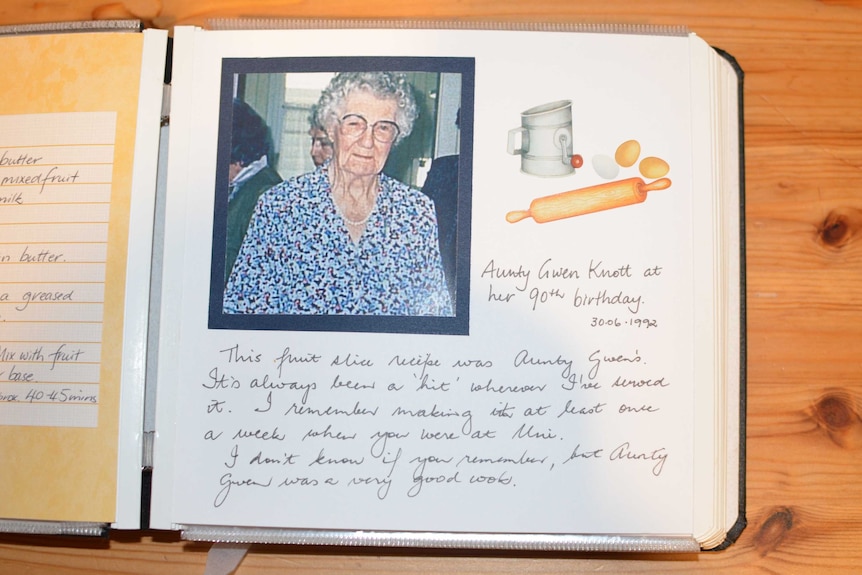 butter
mixed fruit
milk
butter.
a greased
Mix with fruit
base.
40-45 mins
Aunty Gwen Knott at
her 90th birthday.
30·06·1992
This fruit slice recipe was Aunty Gwen's.
It's always been a 'hit' wherever I've served
it. I remember making it at least once
a week when you were at Uni.
I don't know if you remember, but Aunty
Gwen was a very good cook.